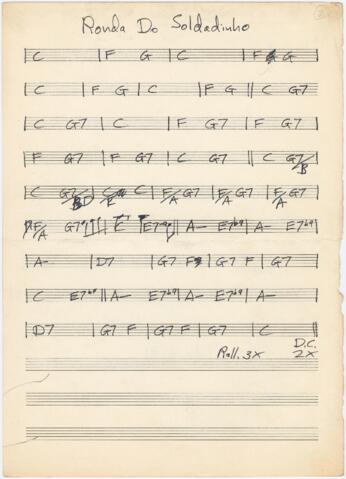 Ronda Do Soldadinho
C | F G | C | F G
C | F G | C | F G || C G7
C G7 | C | F G7 | F G7
F G7 | F G7 | C G7 || C G7/B
C G7/B | C | F/A G7 | F/A G7 | F/A G7
F/A G7 | E7 || A- E7b9 | A- E7b9
A- | D7 | G7 F | G7 F | G7
C E7b9 || A- E7b9 | A- E7b9 | A-
D7 | G7 F | G7 F | G7 C ||
Rall. 3x D.C. 2x